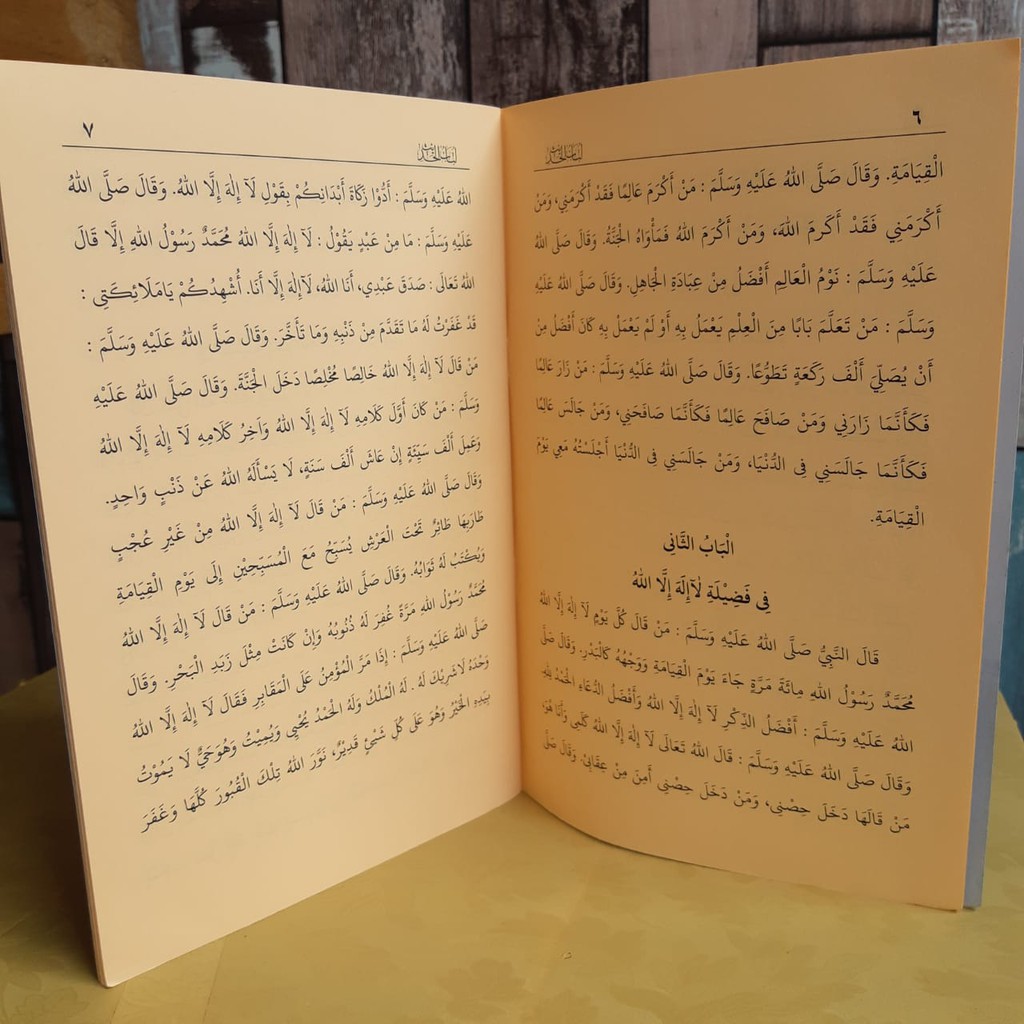 ٦
لباب الحديث
الْقِيَامَةِ. وَقَالَ صَلَّى اللهُ عَلَيْهِ وَسَلَّمَ : مَنْ أَكْرَمَ عَالِمًا فَقَدْ أَكْرَمَنِي، وَمَنْ
أَكْرَمَنِي فَقَدْ أَكْرَمَ اللهَ، وَمَنْ أَكْرَمَ اللهَ فَمَأْوَاهُ الْجَنَّةُ. وَقَالَ صَلَّى اللهُ
عَلَيْهِ وَسَلَّمَ : نَوْمُ الْعَالِمِ أَفْضَلُ مِنْ عِبَادَةِ الْجَاهِلِ. وَقَالَ صَلَّى اللهُ عَلَيْهِ
وَسَلَّمَ : مَنْ تَعَلَّمَ بَابًا مِنَ الْعِلْمِ يَعْمَلُ بِهِ أَوْ لَمْ يَعْمَلْ بِهِ كَانَ أَفْضَلَ مِنْ
أَنْ يُصَلِّيَ أَلْفَ رَكْعَةٍ تَطَوُّعًا. وَقَالَ صَلَّى اللهُ عَلَيْهِ وَسَلَّمَ : مَنْ زَارَ عَالِمًا
فَكَأَنَّمَا زَارَنِي وَمَنْ صَافَحَ عَالِمًا فَكَأَنَّمَا صَافَحَنِي، وَمَنْ جَالَسَ عَالِمًا
فَكَأَنَّمَا جَالَسَنِي فِى الدُّنْيَا، وَمَنْ جَالَسَنِي فِى الدُّنْيَا أَجْلَسْتُهُ مَعِي يَوْمَ
الْقِيَامَةِ.
الْبَابُ الثَّانِى
فِى فَضِيْلَةِ لآإِلَهَ إِلَّا اللهُ
قَالَ النَّبِيُّ صَلَّى اللهُ عَلَيْهِ وَسَلَّمَ : مَنْ قَالَ كُلَّ يَوْمٍ لَآ إِلٰهَ إِلَّا اللهُ
مُحَمَّدٌ رَسُوْلُ اللهِ مِائَةَ مَرَّةٍ جَاءَ يَوْمَ الْقِيَامَةِ وَوَجْهُهُ كَالْبَدْرِ. وَقَالَ صَلَّى
اللهُ عَلَيْهِ وَسَلَّمَ : أَفْضَلُ الذِّكْرِ لَآ إِلٰهَ إِلَّا اللهُ وَأَفْضَلُ الدُّعَاءِ الْحَمْدُ لِلهِ.
وَقَالَ صَلَّى اللهُ عَلَيْهِ وَسَلَّمَ : قَالَ اللهُ تَعَالَى لَآ إِلٰهَ إِلَّا اللهُ كَلَمِى وَأَنَا هُوَ،
مَنْ قَالَهَا دَخَلَ حِصْنِى، وَمَنْ دَخَلَ حِصْنِى أَمِنَ مِنْ عِقَابِى. وَقَالَ صَلَّى
٧
لباب الحديث
اللهُ عَلَيْهِ وَسَلَّمَ : أَدُّوْا زَكَاةَ أَبْدَانِكُمْ بِقَوْلِ لَآ إِلٰهَ إِلَّا اللهُ. وَقَالَ صَلَّى اللهُ
عَلَيْهِ وَسَلَّمَ : مَا مِنْ عَبْدٍ يَقُوْلُ : لَآ إِلٰهَ إِلَّا اللهُ مُحَمَّدٌ رَسُوْلُ اللهِ إِلَّا قَالَ
اللهُ تَعَالَى : صَدَقَ عَبْدِي، أَنَا اللهُ، لَآإِلٰهَ إِلَّا أَنَا. أُشْهِدُكُمْ يَامَلَائِكَتِى :
قَدْ غَفَرْتُ لَهُ مَا تَقَدَّمَ مِنْ ذَنْبِهِ وَمَا تَأَخَّرَ. وَقَالَ صَلَّى اللهُ عَلَيْهِ وَسَلَّمَ :
مَنْ قَالَ لَآ إِلٰهَ إِلَّا اللهُ خَالِصًا مُخْلِصًا دَخَلَ الْجَنَّةَ. وَقَالَ صَلَّى اللهُ عَلَيْهِ
وَسَلَّمَ : مَنْ كَانَ أَوَّلَ كَلَامِهِ لَآ إِلٰهَ إِلَّا اللهُ وَاَخِرُ كَلَامِهِ لَآ إِلٰهَ إِلَّا اللهُ
وَعَمِلَ أَلْفَ سَيِّئَةٍ إِنْ عَاشَ أَلْفَ سَنَةٍ، لَا يَسْأَلَهُ اللهُ عَنْ ذَنْبٍ وَاحِدٍ.
وَقَالَ صَلَّى اللهُ عَلَيْهِ وَسَلَّمَ : مَنْ قَالَ لَآ إِلٰهَ إِلَّا اللهُ مِنْ غَيْرِ عُجْبٍ
طَارَبِهَا طَائِرٌ تَحْتَ الْعَرْشِ يُسَبِّحُ مَعَ الْمُسَبِّحِيْنَ إِلَى يَوْمِ الْقِيَامَةِ
وَيُكْتَبُ لَهُ ثَوَابُهُ. وَقَالَ صَلَّى اللهُ عَلَيْهِ وَسَلَّمَ : مَنْ قَالَ لَآ إِلٰهَ إِلَّا اللهُ
مُحَمَّدٌ رَسُوْلُ اللهِ مَرَّةً غُفِرَ لَهُ ذُنُوْبُهُ وَإِنْ كَانَتْ مِثْلَ زَبَدِ الْبَحْرِ. وَقَالَ
صَلَّى اللهُ عَلَيْهِ وَسَلَّمَ : إِذَا مَرَّ الْمُؤْمِنُ عَلَى الْمَقَابِرِ فَقَالَ لَآ إِلٰهَ إِلَّا اللهُ
وَحْدَهُ لَاشَرِيْكَ لَهُ . لَهُ الْمُلْكُ وَلَهُ الْحَمْدُ يُحْيِى وَيُمِيْتُ وَهُوَحَيٌّ لَا يَمُوْتُ
بِيَدِهِ الْخَيْرُ وَهُوَ عَلَى كُلِّ شَيْئٍ قَدِيْرٌ، نَوَّرَ اللهُ تِلْكَ الْقُبُوْرَ كُلَّهَا وَغَفَرَ